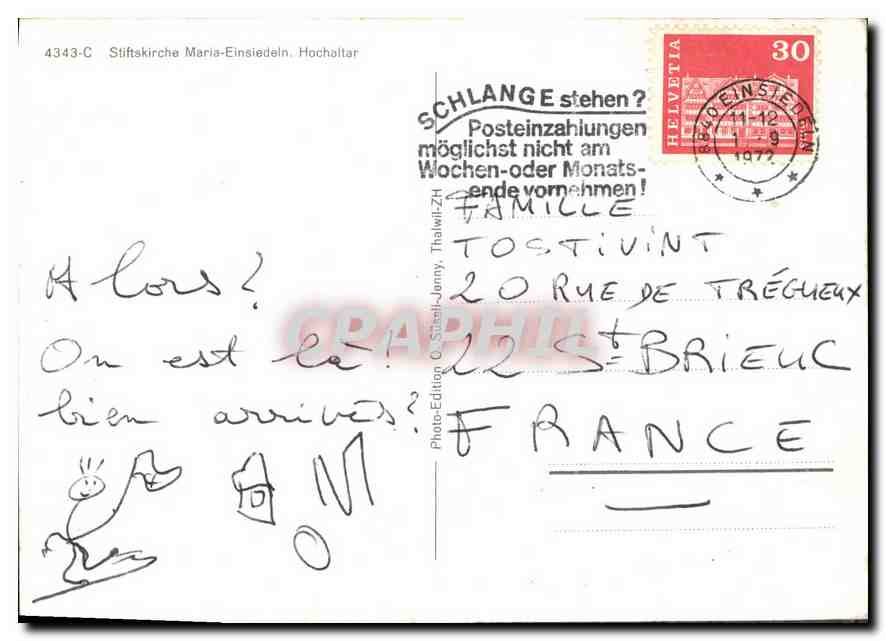 4343-C Stiftskirche Maria-Einsiedeln. Hochaltar
SCHLANGE stehen?
Posteinzahlungen
möglichst nicht am
Wochen-oder Monats-
ende vornehmen!
HELVETIA
30
8840 EINSIEDELN
11-12
1.-9
1972
Alors?
On est là!
bien arrivés?
Photo-Edition O. Süssli-Jenny, Thalwil-ZH
FAMILLE
TOSTIVINT
20 RUE DE TRÉGUEUX
22 St-BRIEUC
FRANCE
CPAPHIL